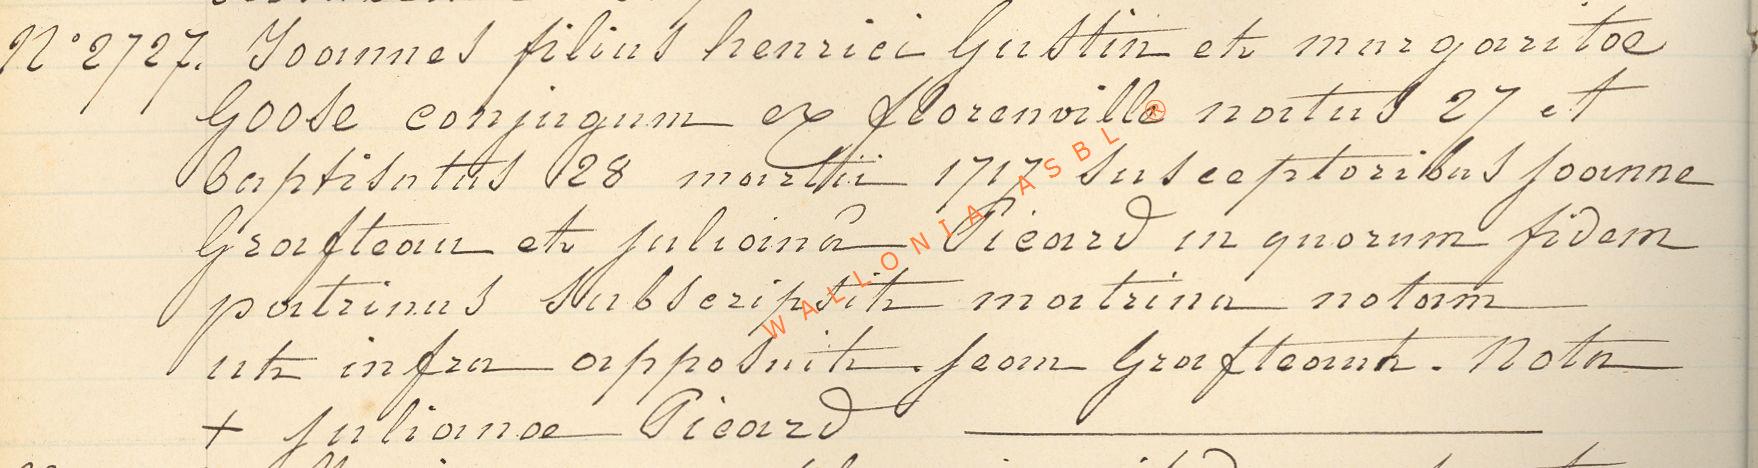 N° 2727. Joannes filius henrici Gustin et margaritae
Goose conjugum ex florenville natus 27 et
baptisatus 28 martii 1717 susceptoribus joanne
Grafteau et julianâ Picard in quorum fidem
patrinus subscripsit matrina notam
ut infra apposuit. jean Grafteaut. Nota
+ julianae Picard
WALLONIA ASBL ®